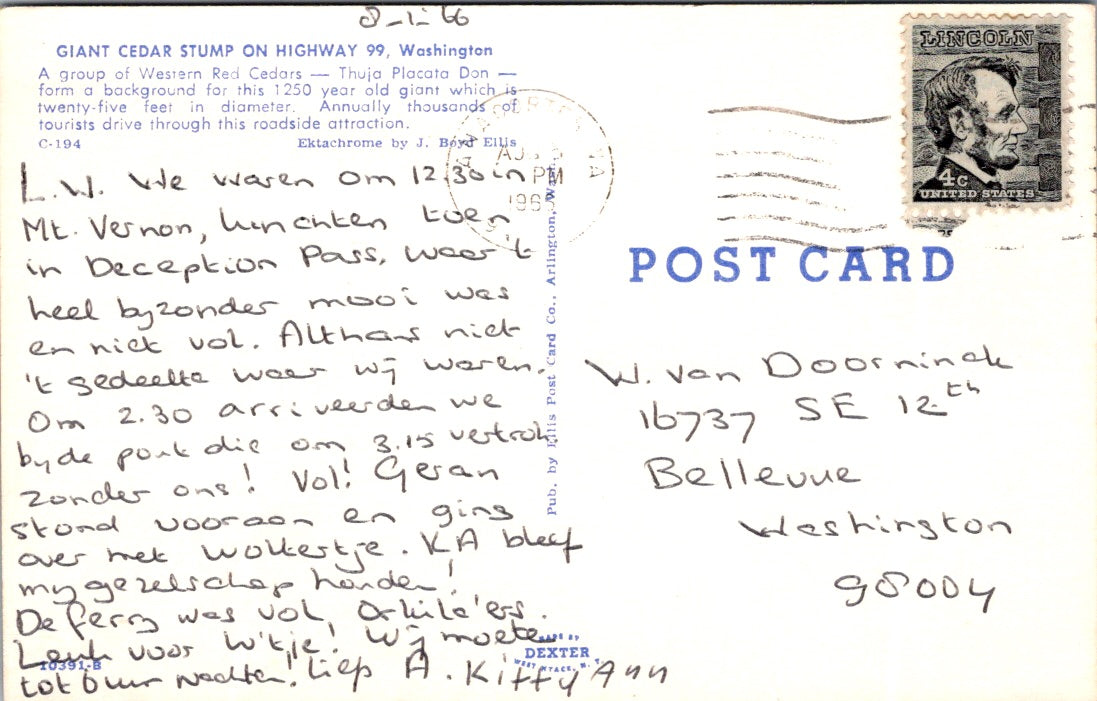 8-1-66
GIANT CEDAR STUMP ON HIGHWAY 99, Washington
A group of Western Red Cedars — Thuja Placata Don —
form a background for this 1250 year old giant which is
twenty-five feet in diameter. Annually thousands of
tourists drive through this roadside attraction.
C-194 Ektachrome by J. Boyd Ellis
L.W. We waren om 12.30 in
Mt. Vernon, lunchten toen
in Deception Pass, waar 't
heel byzonder mooi was
en niet vol. Althans niet
't gedeelte waar wij waren.
Om 2.30 arriveerden we
by de pont die om 3.15 vertrok,
zonder ons! Vol! Geran
stond vooraan en ging
over met Woltertje. KA bleef
my gezelschap houden!
De ferry was vol,
Leuk voor W'tje! Wij moeten
tot 6 uur wachten! Liefs A. Kitty Ann
10391-B
Pub. by Ellis Post Card Co., Arlington, Wash.
MADE BY
DEXTER
WEST NYACK, N.Y.
PM
LINCOLN
4c
UNITED STATES
POST CARD
W. van Doorninck
16737 SE 12th
Bellevue
Washington
98004